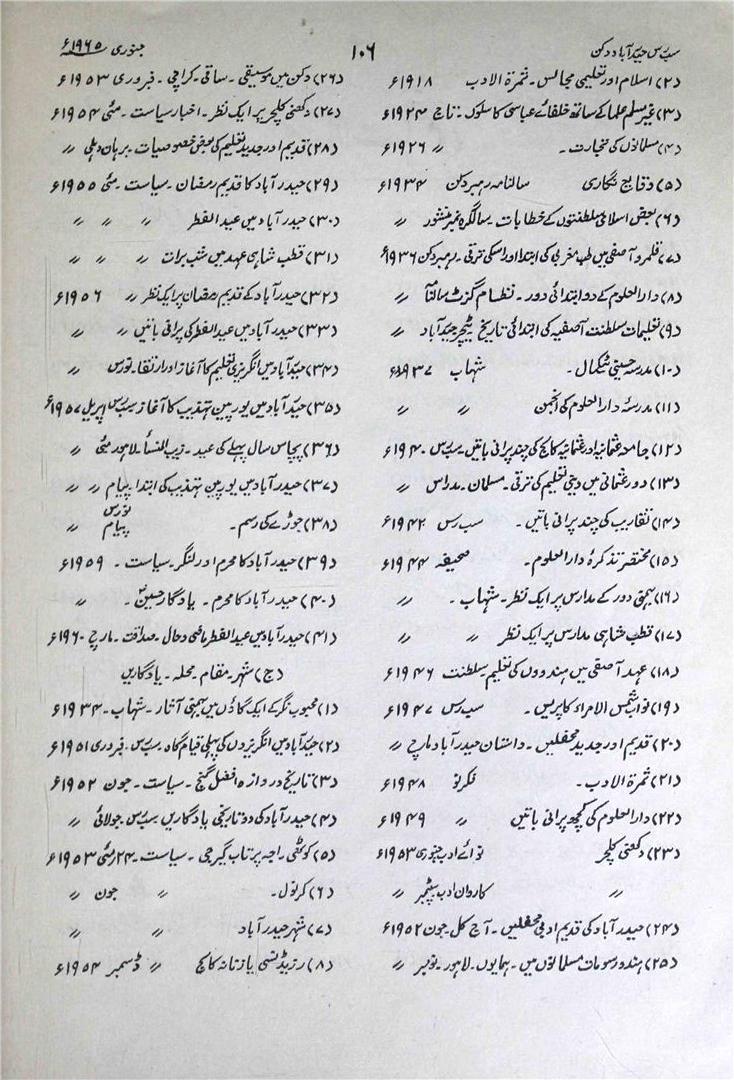 سب رس حیدرآباد دکن
۱۰۶
جنوری ۱۹۶۵ء
(۲) اسلام اور تعلیمی مجالس ۔ ثمرۃ الادب ۱۹۱۸ء
(۳) غیر مسلم علما کے ساتھ خلفائے عباسی کا سلوک ۔ تاج ۱۹۲۴ء
(۴) مسلمانوں کی تجارت ۔ 〃 ۱۹۲۶ء
(۵) وقایع نگاری سالنامہ رہبر دکن ۱۹۳۴ء
(۶) بعض اسلامی سلطنتوں کے خطابات ۔ سالگرہ نمبر منشور 〃
(۷) قلمرو آصفی میں طب مغربی کی ابتدا اور اسکی ترقی ۔ رہبر دکن ۱۹۳۶ء
(۸) دارالعلوم کے دو ابتدائی دور ۔ نظام گزٹ سالنامہ 〃
(۹) تعلیمات سلطنت آصفیہ کی ابتدائی تاریخ ٹیچر حیدرآباد 〃
(۱۰) مدرسہ حسینی ٹیکمال ۔ شہاب ۱۹۳۷ء
(۱۱) مدرسہ دارالعلوم کی انجمن 〃 〃
(۱۲) جامعہ عثمانیہ اور عثمانیہ کالج کی چند پرانی باتیں ۔ سب رس ۱۹۴۰ء
(۱۳) دور عثمانی میں دینی تعلیم کی ترقی ۔ مسلمان ۔ مدراس 〃
(۱۴) تقاریب کی چند پرانی باتیں ۔ سب رس ۱۹۴۲ء
(۱۵) مختصر تذکرۂ دارالعلوم ۔ صحیفہ ۱۹۴۴ء
(۱۶) بہمنی دور کے مدارس پر ایک نظر ۔ شہاب ۔ 〃
(۱۷) قطب شاہی مدارس پر ایک نظر 〃 〃
(۱۸) عہد آصفی میں ہندووں کی تعلیم ۔ سلطنت ۱۹۴۶ء
(۱۹) نواب شمس الامراء کا پریس ۔ سب رس ۱۹۴۷ء
(۲۰) قدیم اور جدید محفلیں ۔ داستان حیدرآباد مارچ 〃
(۲۱) ثمرۃ الادب ۔ فکر نو ۱۹۴۸ء
(۲۲) دارالعلوم کی کچھ پرانی باتیں 〃 ۱۹۴۹ء
(۲۳) دکھنی کلچر نوائے ادب جنوری ۱۹۵۳ء
〃 کاروان ادب سپٹمبر 〃
(۲۴) حیدرآباد کی قدیم ادبی محفلیں ۔ آج کل ۔ جون ۱۹۵۲ء
(۲۵) ہندو رسومات مسلمانوں میں ۔ ہمایوں ۔ لاہور ۔ نومبر 〃
(۲۶) دکن میں موسیقی ۔ ساقی ۔ کراچی ۔ فبروری ۱۹۵۳ء
(۲۷) دکھنی کلچر پر ایک نظر ۔ اخبار سیاست ۔ مئی ۱۹۵۴ء
(۲۸) قدیم اور جدید تعلیم کی بعض خصوصیات ۔ برہان دہلی 〃
(۲۹) حیدرآباد کا قدیم رمضان ۔ سیاست ۔ مئی ۱۹۵۵ء
(۳۰) حیدرآباد میں عید الفطر 〃 〃 〃
(۳۱) قطب شاہی عہد میں شب برات 〃 〃 〃
(۳۲) حیدرآباد کے قدیم رمضان پر ایک نظر 〃 ۱۹۵۶ء
(۳۳) حیدرآباد میں عید الفطر کی پرانی باتیں 〃 〃
(۳۴) حیدرآباد میں انگریزی تعلیم کا آغاز اور ارتقا ۔ نورس 〃
(۳۵) حیدرآباد میں یورپین تہذیب کا آغاز سب رس اپریل ۱۹۵۷ء
(۳۶) پچاس سال پہلے کی عید ۔ زیب النساء ۔ لاہور مئی 〃
(۳۷) حیدرآباد میں یورپین تہذیب کی ابتدا ۔ پیام 〃 〃
(۳۸) جوڑے کی رسم ۔ نورس پیام 〃
(۳۹) حیدرآباد کا محرم اور لنگر ۔ سیاست ۔ ۱۹۵۹ء
(۴۰) حیدرآباد کا محرم ۔ یادگار حسینؓ ۔ 〃
(۴۱) حیدرآباد میں عید الفطر ماضی و حال ۔ صداقت ۔ مارچ ۱۹۶۰ء
(ج) شہر ۔ مقام ۔ محلہ ۔ یادگاریں
(۱) محبوب نگر کے ایک گاؤں میں بہمنی آثار ۔ شہاب ۔ ۱۹۳۴ء
(۲) حیدرآباد میں انگریزوں کی پہلی قیام گاہ ۔ سب رس ۔ فبروری ۱۹۵۱ء
(۳) تاریخ دروازہ افضل گنج ۔ سیاست ۔ جون ۱۹۵۲ء
(۴) حیدرآباد کی دو تاریخی یادگاریں سب رس ۔ جولائی 〃
(۵) کوٹھی راجہ پرتاب گیرجی ۔ سیاست ۔ ۲۴ مئی ۱۹۵۳ء
(۶) کرنول ۔ 〃 جون 〃
(۷) شہر حیدرآباد 〃 〃
(۸) رزیڈنسی یا زنانہ کالج 〃 ڈسمبر ۱۹۵۴ء